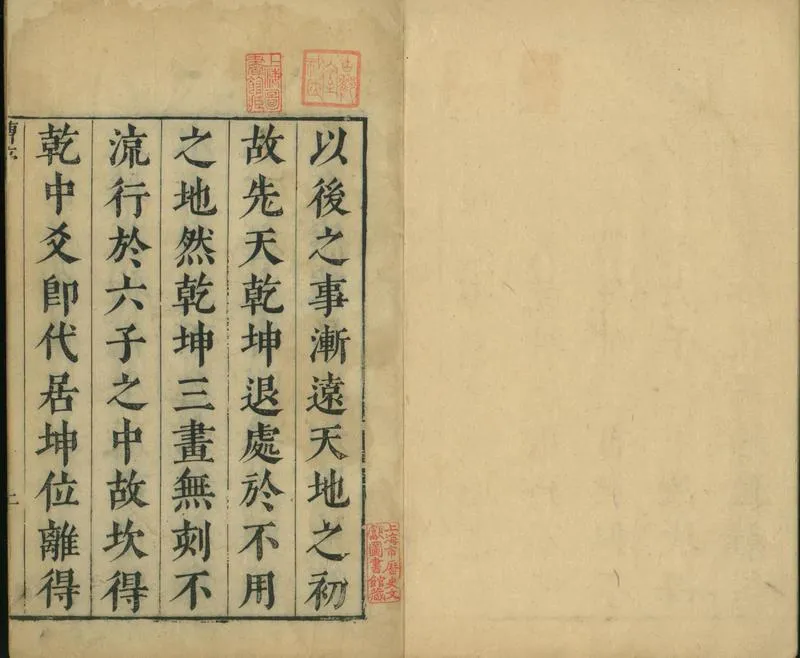 以後之事漸遠天地之初
故先天乾坤退處於不用
之地然乾坤三畫無刻不
流行於六子之中故坎得
乾中爻卽代居坤位離得
上海圖書館藏
上海市歷史文獻圖書館藏